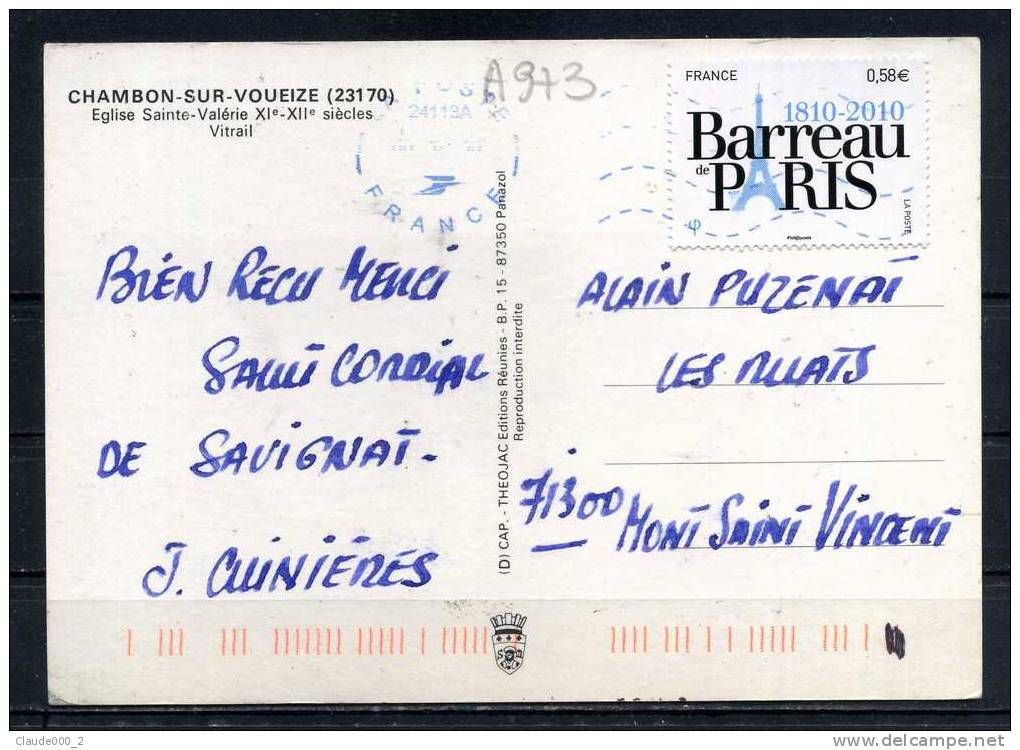 CHAMBON-SUR-VOUEIZE (23170)
Eglise Sainte-Valérie XIe-XIIe siècles
Vitrail
A973
24113A
FRANCE
FRANCE 0,58€
1810-2010
Barreau
de PARIS
LA POSTE
Phil@poste
BIEN RECU MERCI
SALUT CORDIAL
DE SAVIGNAT-
J.
(D) CAP. - THEOJAC Editions Réunies - B.P. 15 - 87350 Panazol
Reproduction interdite
ALAIN PUZENAT
LES
71300 MONT SAINT VINCENT
Claude000_2 www.delcampe.net